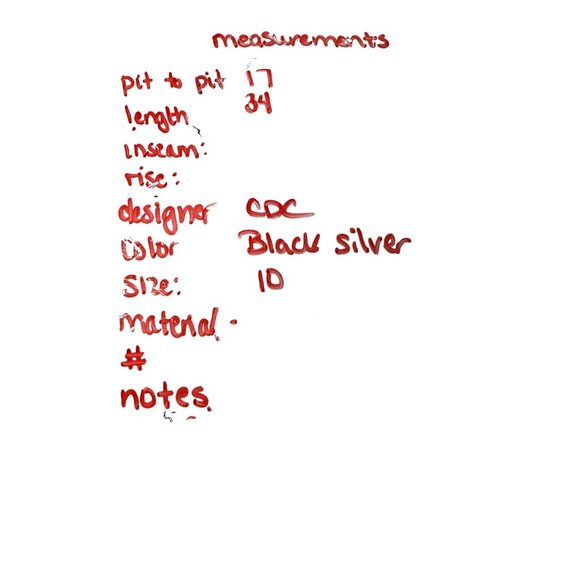 measurements
pit to pit 17
length 34
inseam:
rise:
designer CDC
Color Black silver
Size: 10
material -
#
notes.